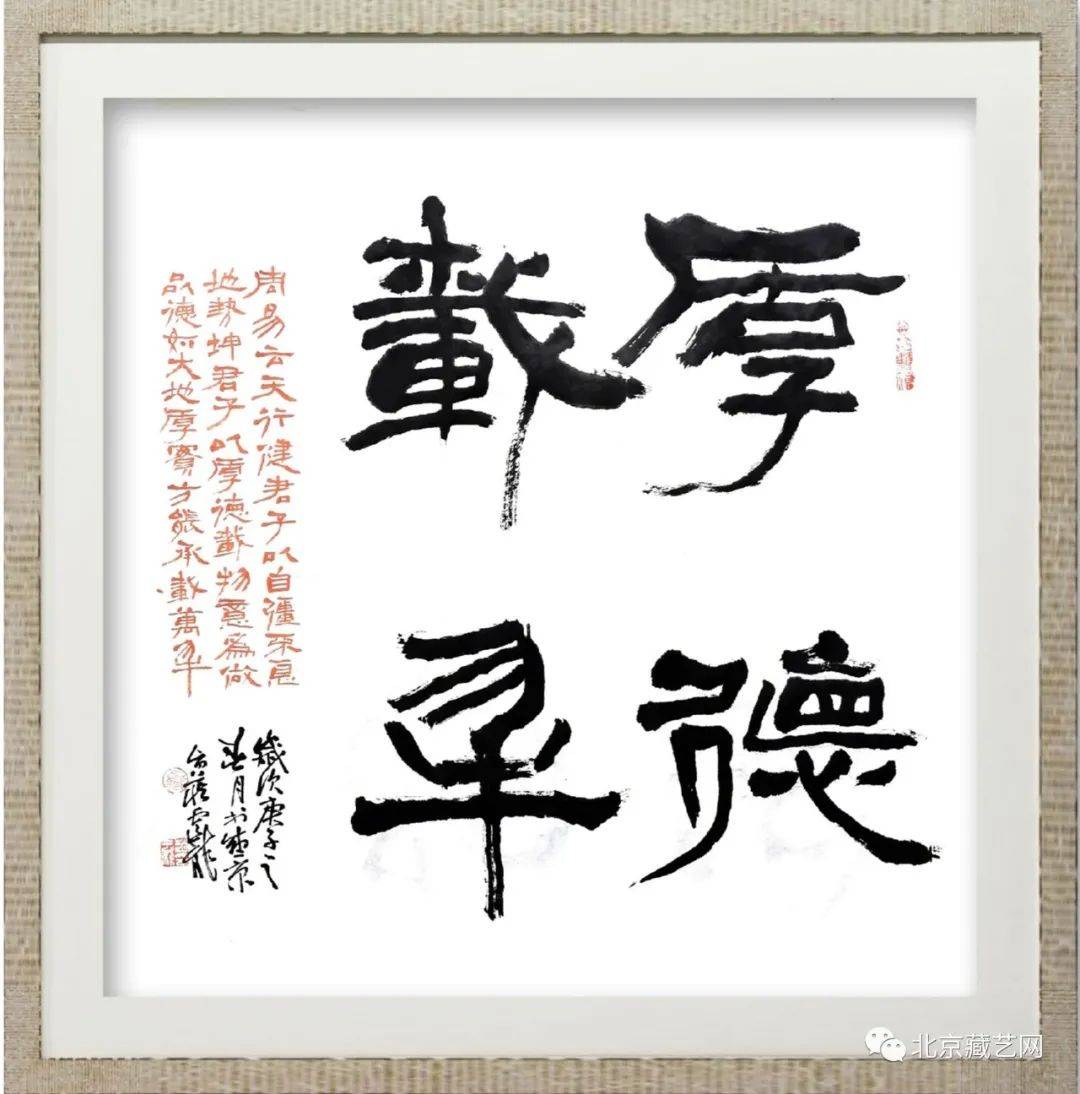 厚德
載物
周易云天行健君子以自彊不息
地勢坤君子以厚德載物意爲做
品德如大地厚實方能承載萬物
歲次庚子之
春月於京
雲龍
北京藏艺网